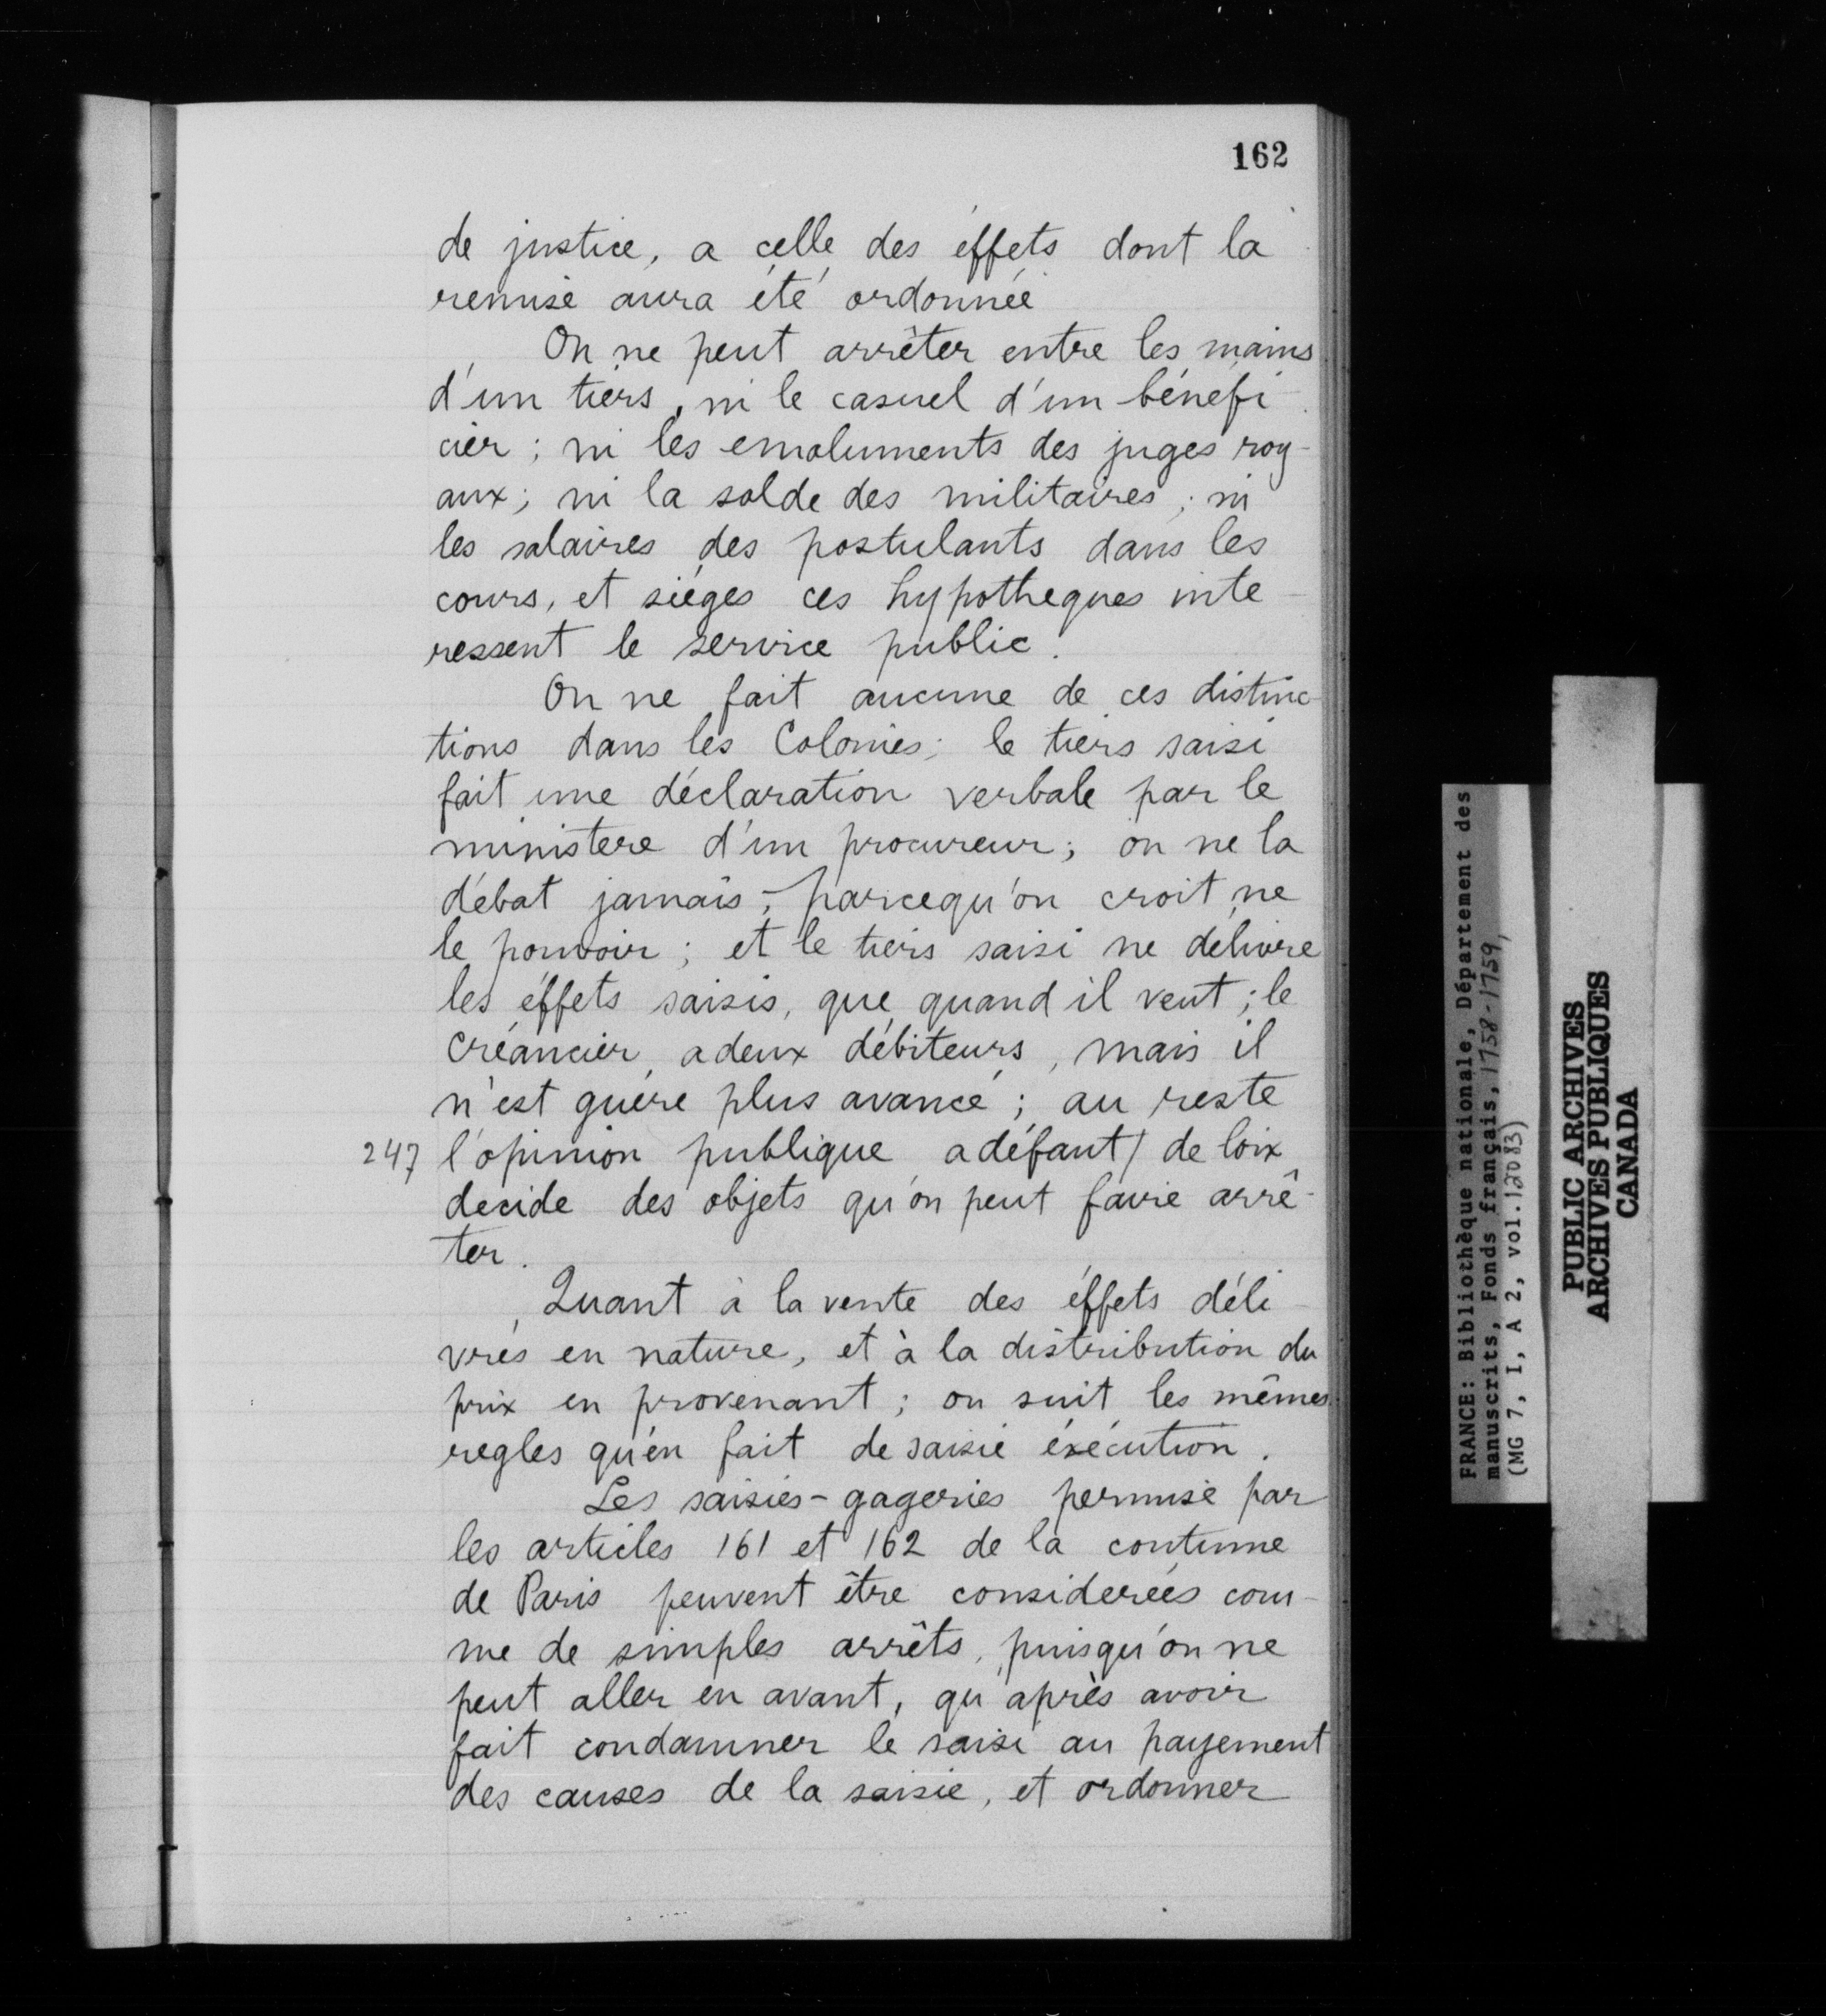 162
de justice, a celle des éffets dont la
remise aura été ordonnée
On ne peut arrêter entre les mains
d'un tiers, ni le casuel d'un bénéfi-
cier; ni les emoluments des juges roy-
aux; ni la solde des militaires; ni
les salaires des postulants dans les
cours, et siéges ces hypotheques inte-
ressent le service public.
On ne fait aucune de ces distinc-
tions dans les Colonies; le tiers saisi
fait une déclaration verbale par le
ministere d'un procureur; on ne la
débat jamais; parcequ'on croit ne
le pouvoir; et le tiers saisi ne délivre
les éffets saisis, que quand il veut; le
créancier, a deux débiteurs, mais il
n'est guère plus avancé; au reste
247 l'opinion publique a défaut / de loix
decide des objets qu'on peut faire arrê-
ter.
Quant à la vente des éffets déli-
vrés en nature, et à la distribution du
prix en provenant; on suit les mêmes
regles qu'en fait de saisie éxécution.
Les saisies-gageries permise par
les articles 161 et 162 de la coutume
de Paris peuvent être considerées com-
me de simples arrêts, puisqu'on ne
peut aller en avant, qu'après avoir
fait condamner le saisi au payement
des causes de la saisie, et ordonner
FRANCE: Bibliothèque nationale, Département des
manuscrits, Fonds français, 1758-1759,
(MG 7, I, A 2, vol. 12083)
PUBLIC ARCHIVES
ARCHIVES PUBLIQUES
CANADA